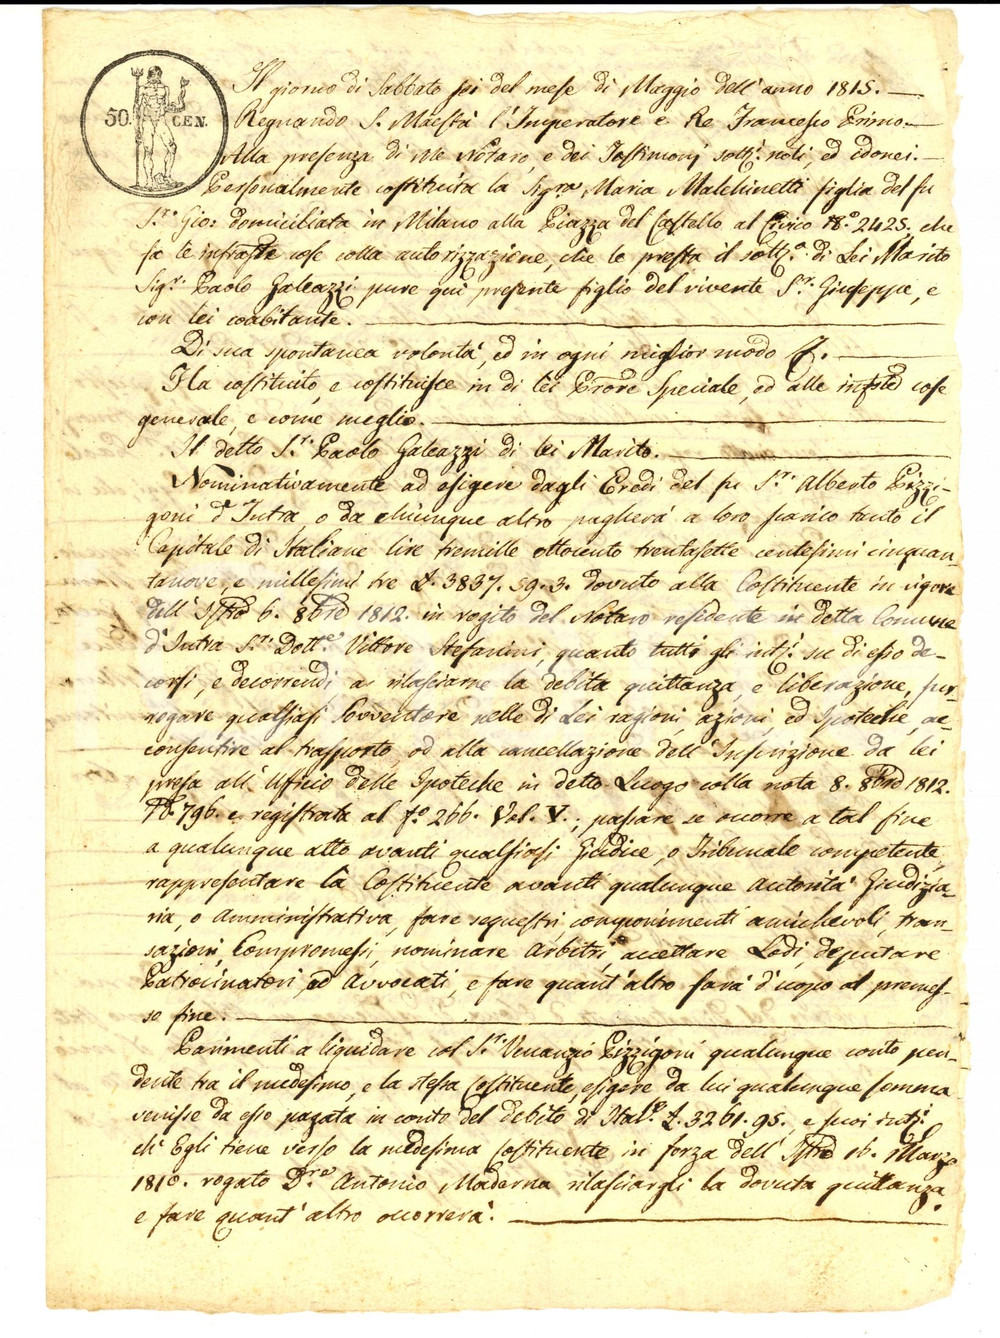 50. CEN.
Il giorno di Sabbato sei del mese di Maggio dell'anno 1815.
Regnando S. Maestà l'Imperatore e Re Francesco Primo.
Alla presenza di Me Notaro, e dei Testimonj sott.i noti, ed idonei.
Personalmente costituita la Sig.ra Maria Malchinetti figlia del fu
S.r Gio: domiciliata in Milano alla Piazza del Castello al Civico N.o 2425, che
fa le infratte cose colla autorizzazione, che le presta il sott.o di Lei Marito
Sig.r Paolo Galeazzi pure qui presente figlio del vivente S.r Giuseppe, e
con lei coabitante.
Di sua spontanea volontà, ed in ogni miglior modo
Ha costituito, e costituisce in di lei Prore Speciale, ed alle infrtte cose
generale, e come meglio.
Il detto S.r Paolo Galeazzi di lei Marito.
Nominativamente ad esigere dagli Eredi del fu S.r Alberto Pizzi-
goni d'Intra, o da chiunque altro pagherà a loro scarico tanto il
Capitale di Italiane lire tremille ottocento trentasette centesimi cinquan-
tanove, e millesimi tre £. 3837. 59. 3. dovuto alla Costituente in vigore
dell' Istro 6. 8bre 1812. in rogito del Notaro residente in detta Comune
d'Intra S.r Dott.e Vittore Stefanini, quanto tutti gli intj. su di esso de-
corsi, e decorrendi, a rilasciarne la debita quittanza, e liberazione, sur-
rogare qualsiasi Sovventore nelle di Lei ragioni, azioni, ed Ipoteche, ac-
consentire al trasporto, od alla cancellazione dell' Inscrizione da lei
presa all' Ufficio delle Ipoteche in detto Luogo colla nota 8. 8bre 1812.
N.o 796. e registrata al f.o 266. Vol. V.; passare se occorre a tal fine
a qualunque atto avanti qualsiasi Giudice, o Tribunale competente,
rappresentare la Costituente avanti qualunque Autorità Giudizia-
ria, o Amministrativa, fare sequestri, componimenti amichevoli, tran-
sazioni, Compromessi, nominare Arbitri, accettare Lodi, deputare
Patrocinatori, ed Avvocati, e fare quant'altro sarà d'uopo al premes-
so fine.
Parimenti a liquidare col S.r Venanzio Pizzigoni qualunque conto pen-
dente tra il medesimo, e la stessa Costituente, esigere da lui qualunque somma
venisse da esso pagata in conto del debito di Ital.e £. 3261. 95., e suoi intj.
ch' Egli tiene verso la medesima Costituente in forza dell' Istro 16. Marzo
1810. rogato D.re Antonio Maderna rilasciargli la dovuta quittanza,
e fare quant'altro occorrerà.